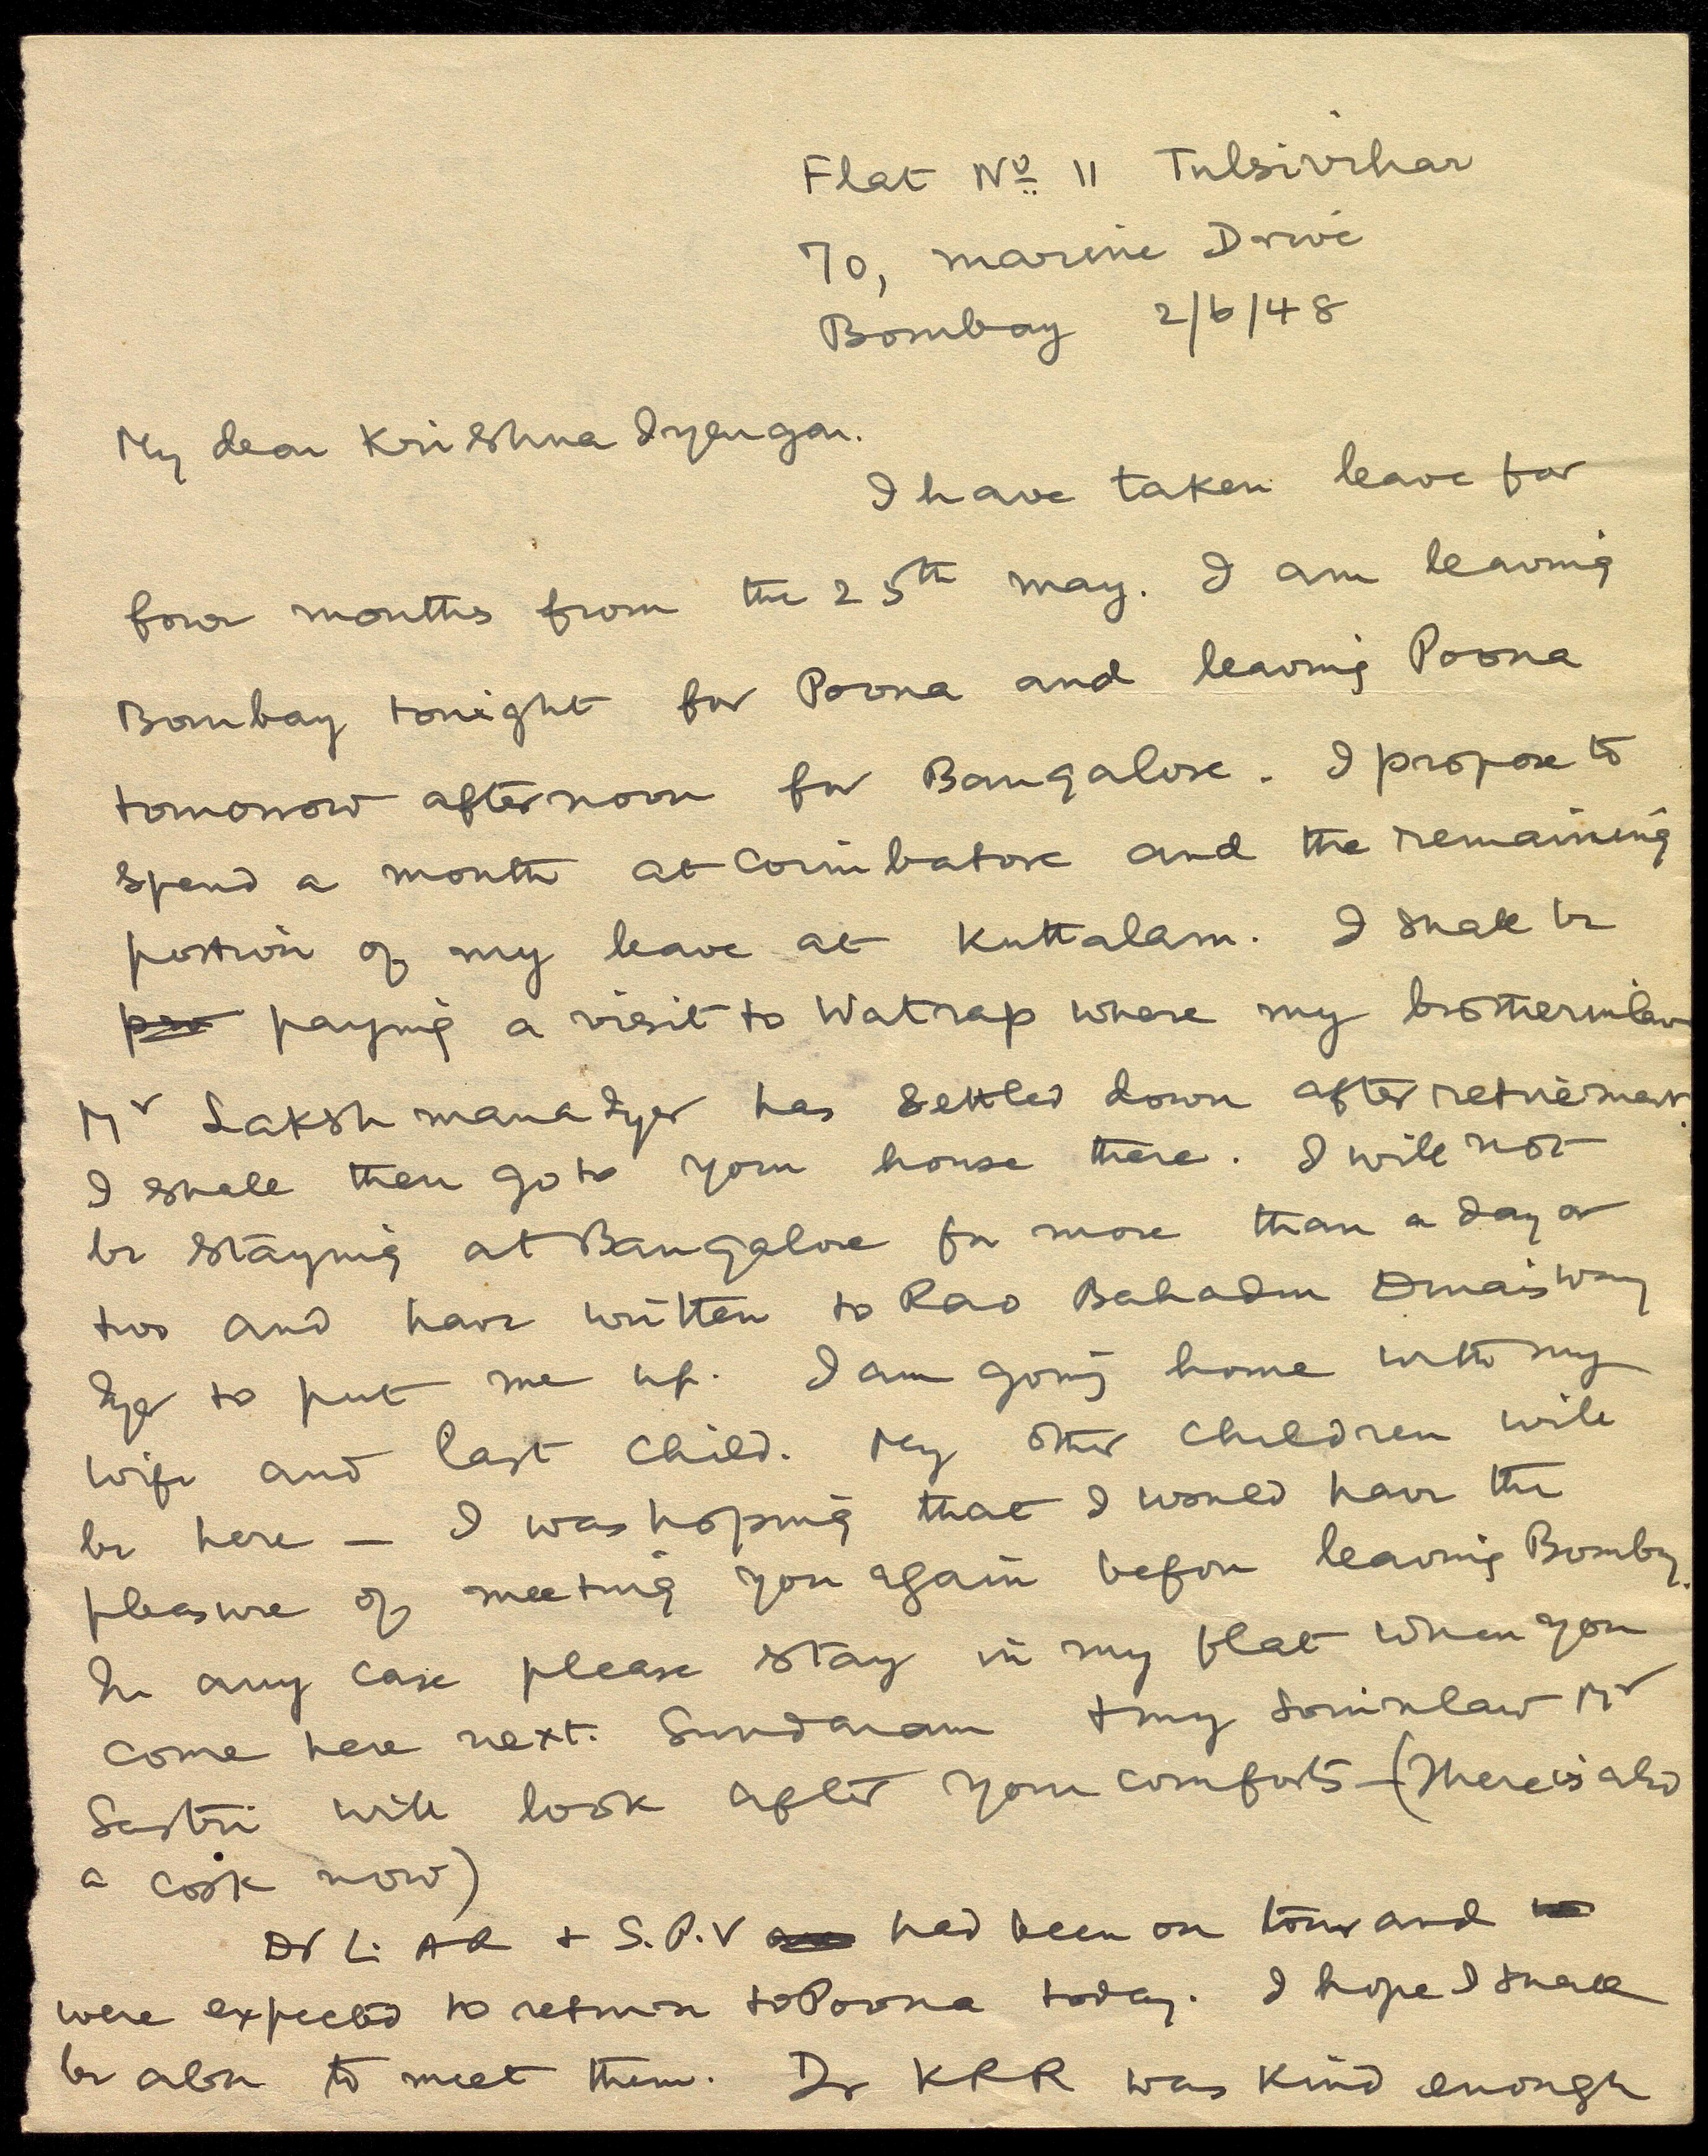 Flat No 11 Tulsivihar
70, Marine Drive
Bombay 2/6/48
My dear Krishna Iyengar.
I have taken leave for
four months from the 25th May. I am leaving
Bombay tonight for Poona and leaving Poona
tomorrow afternoon for Bangalore. I propose to
spend a month at Coimbatore and the remaining
portion of my leave at Kuttalam. I shall be
pro paying a visit to Watrap where my brotherinlaw
Mr Lakshmana Iyer has settled down after retirement.
I shall then go to your house there. I will not
be staying at Bangalore for more than a day or
two and have written to Rao Bahadur Duraiswamy
Iyer to put me up. I am going home with my
wife and last child. My other children will
be here — I was hoping that I would have the
pleasure of meeting you again before leaving Bombay.
In any case please stay in my flat when you
come here next. Sundaram + my soninlaw Mr
Sastri will look after your comforts – (There is also
a cook now)
Dr L. A R + S.P.V had been on tour and to
were expected to return to Poona today. I hope I shall
be able to meet them. Dr KRR was kind enough